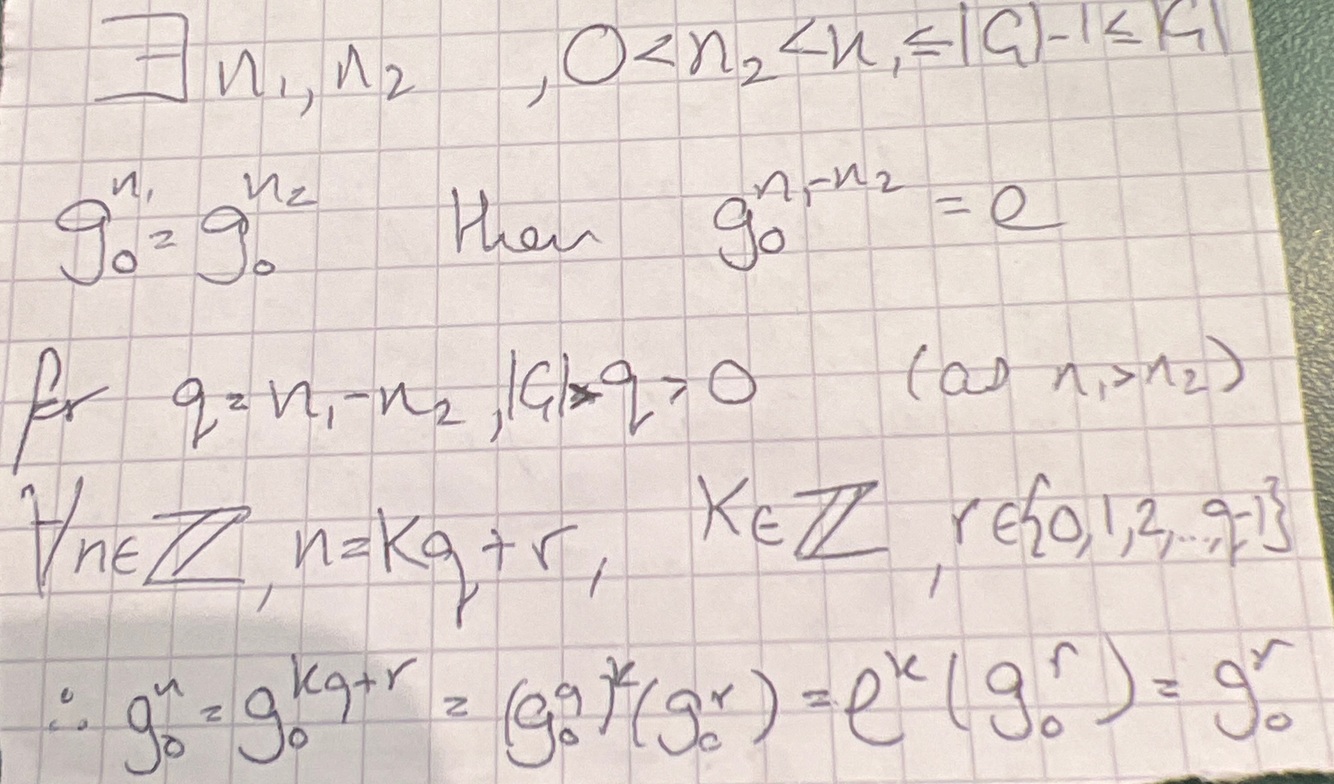 ∃ n₁, n₂ , 0 < n₂ < n₁ ≤ |G|-1 ≤ |G|
g₀^{n₁} = g₀^{n₂} then g₀^{n₁-n₂} = e
for q = n₁-n₂, |G| > q > 0 (as n₁ > n₂)
∀n∈ℤ, n = kq + r, k∈ℤ, r∈{0,1,2,...,q-1}
∴ g₀^n = g₀^{kq+r} = (g₀^q)^k (g₀^r) = e^k (g₀^r) = g₀^r